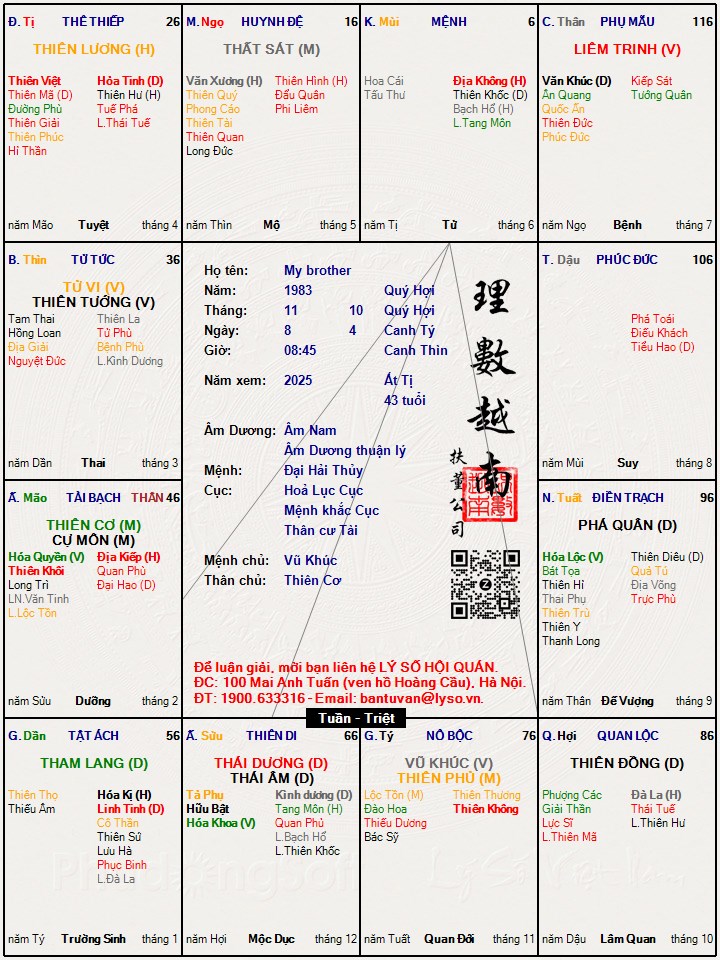 Đ. Tị THÊ THIẾP 26
THIÊN LƯƠNG (H)
Thiên Việt Hỏa Tinh (D)
Thiên Mã (D) Thiên Hư (H)
Đường Phù Tuế Phá
Thiên Giải L.Thái Tuế
Thiên Phúc
Hỉ Thần
năm Mão Tuyệt tháng 4
M. Ngọ HUYNH ĐỆ 16
THẤT SÁT (M)
Văn Xương (H) Thiên Hình (H)
Thiên Quý Đẩu Quân
Phong Cáo Phi Liêm
Thiên Tài
Thiên Quan
Long Đức
năm Thìn Mộ tháng 5
K. Mùi MỆNH 6
Hoa Cái Địa Không (H)
Tấu Thư Thiên Khốc (D)
Bạch Hổ (H)
L.Tang Môn
năm Tị Tử tháng 6
C. Thân PHỤ MẪU 116
LIÊM TRINH (V)
Văn Khúc (D) Kiếp Sát
Ân Quang Tướng Quân
Quốc Ấn
Thiên Đức
Phúc Đức
năm Ngọ Bệnh tháng 7
B. Thìn TỬ TỨC 36
TỬ VI (V)
THIÊN TƯỚNG (V)
Tam Thai Thiên La
Hồng Loan Tử Phù
Địa Giải Bệnh Phù
Nguyệt Đức L.Kình Dương
năm Dần Thai tháng 3
Họ tên: My brother
Năm: 1983 Quý Hợi
Tháng: 11 10 Quý Hợi
Ngày: 8 4 Canh Tý
Giờ: 08:45 Canh Thìn
Năm xem: 2025 Ất Tị
43 tuổi
Âm Dương: Âm Nam
Âm Dương thuận lý
Mệnh: Đại Hải Thủy
Cục: Hoả Lục Cục
Mệnh khắc Cục
Thân cư Tài
Mệnh chủ: Vũ Khúc
Thân chủ: Thiên Cơ
理數越南
扶董公司
Để luận giải, mời bạn liên hệ LÝ SỐ HỘI QUÁN.
ĐC: 100 Mai Anh Tuấn (ven hồ Hoàng Cầu), Hà Nội.
ĐT: 1900.633316 - Email: bantuvan@lyso.vn.
Tuần - Triệt
T. Dậu PHÚC ĐỨC 106
Phá Toái
Điếu Khách
Tiểu Hao (D)
năm Mùi Suy tháng 8
Ấ. Mão TÀI BẠCH THÂN 46
THIÊN CƠ (M)
CỰ MÔN (M)
Hóa Quyền (V) Địa Kiếp (H)
Thiên Khôi Quan Phù
Long Trì Đại Hao (D)
LN.Văn Tinh
L.Lộc Tồn
năm Sửu Dưỡng tháng 2
N. Tuất ĐIỀN TRẠCH 96
PHÁ QUÂN (D)
Hóa Lộc (V) Thiên Diêu (D)
Bát Tọa Quả Tú
Thiên Hỉ Địa Võng
Thai Phụ Trực Phù
Thiên Trù
Thiên Y
Thanh Long
năm Thân Đế Vượng tháng 9
G. Dần TẬT ÁCH 56
THAM LANG (D)
Thiên Thọ Hóa Kị (H)
Thiếu Âm Linh Tinh (D)
Cô Thần
Thiên Sứ
Lưu Hà
Phục Binh
L.Đà La
năm Tý Trường Sinh tháng 1
Ấ. Sửu THIÊN DI 66
THÁI DƯƠNG (D)
THÁI ÂM (D)
Tả Phụ Kình dương (D)
Hữu Bật Tang Môn (H)
Hóa Khoa (V) Quan Phủ
L.Bạch Hổ
L.Thiên Khốc
năm Hợi Mộc Dục tháng 12
G. Tý NÔ BỘC 76
VŨ KHÚC (V)
THIÊN PHỦ (M)
Lộc Tồn (M) Thiên Thương
Đào Hoa Thiên Không
Thiếu Dương
Bác Sỹ
năm Tuất Quan Đới tháng 11
Q. Hợi QUAN LỘC 86
THIÊN ĐỒNG (D)
Phượng Các Đà La (H)
Giải Thần Thái Tuế
Lực Sĩ L.Thiên Hư
L.Thiên Mã
năm Dậu Lâm Quan tháng 10